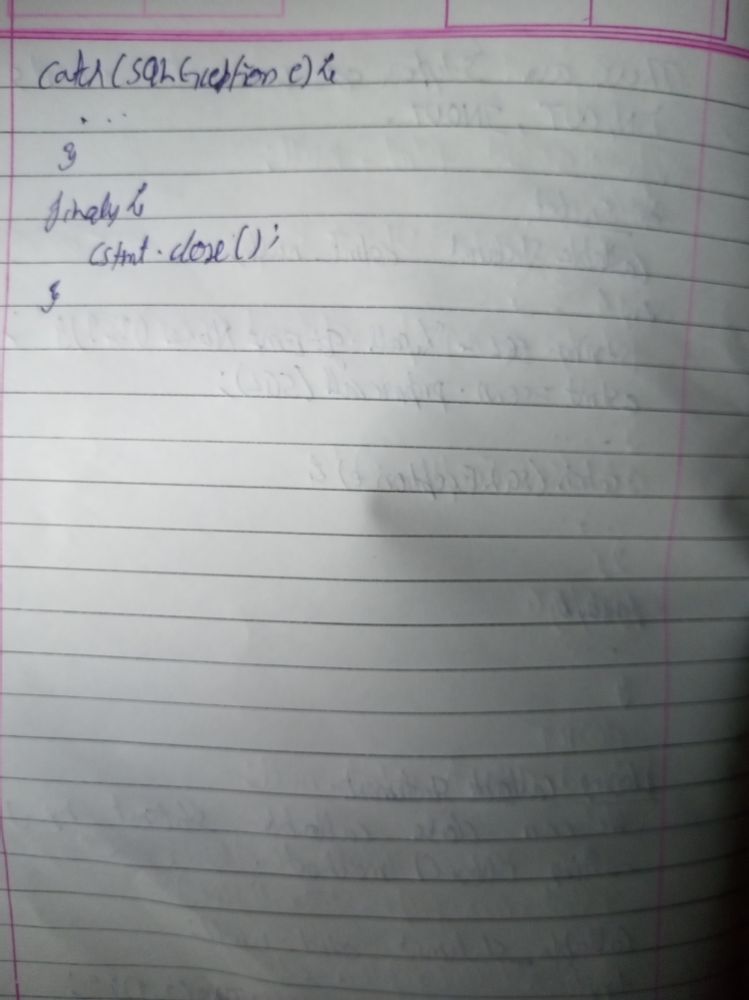 catch(SQLException e){
. ...
}
finally{
cstmt.close();
}